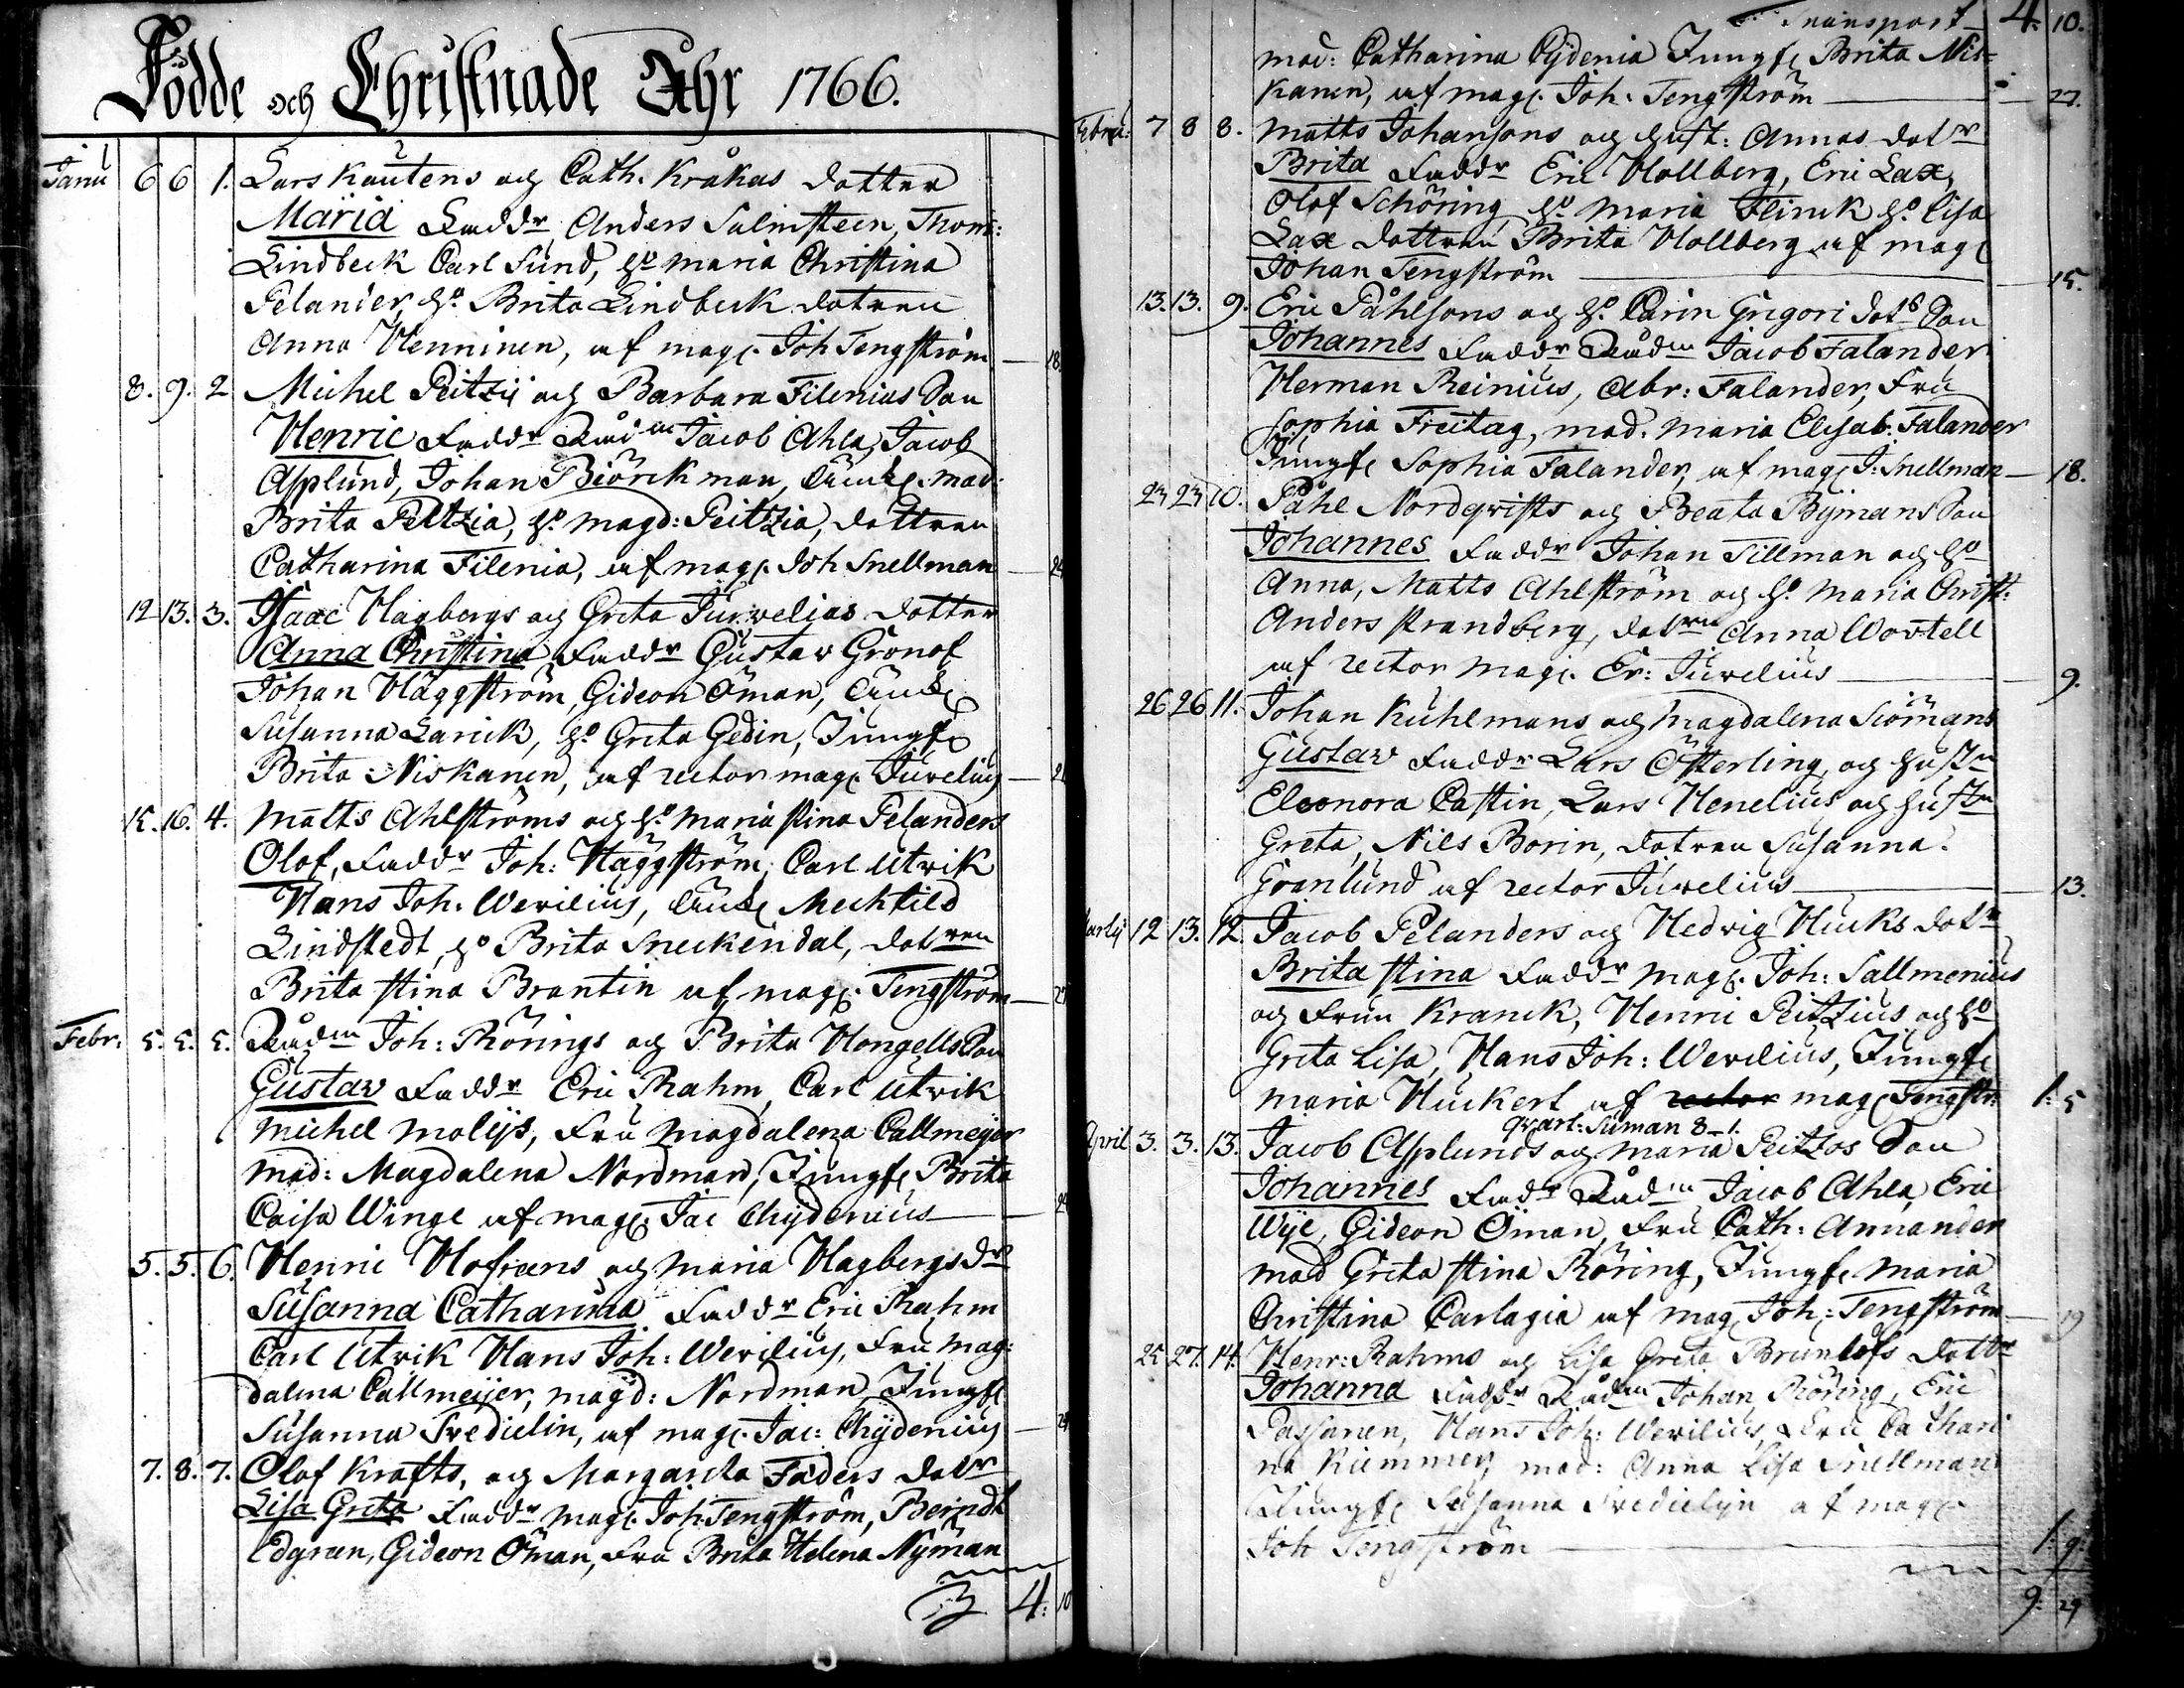 Födde och Christnade Åhr 1766.
Janu 6 6 1. Lars Kautens och Cath. Kråkas dotter
Maria Faddr Anders Salmsteen, Thom:
Lindbeck Carl Sund, Ho Maria Christina
Pelander, Ho Brita Lindbeck dotren
Anna Henninen, af mag. Joh Tengström 18.
8. 9. 2 Michel Peitzij och Barbara Filenias Son
Henric Faddr Rådm Jacob Ahla, Jacob
Asplund, Johan Biörckman, mad:
Brita Peitzia, Ho Magd: Peitzia, dottren
Catharina Filenia, af mag. Joh Snellman 24
12 13. 3. Isaac Hagbergs och Greta Jurvelias dotter
Anna Christina Faddr Gustav Gronof
Johan Häggström, Gideon Öman,
Susanna Lanck, Ho Greta Gedin, Jungf.
Brita Niskanen, af rector mag. Juvelius
15. 16. 4. Matts Ahlströms och Ho Maria Stina Pelanders
Olof, Faddr Joh: Häggström, Carl Utrik
Hans Joh. Werilius, Mechtild
Lindstedt, Ho Brita Sneckendal, dotren
Brita Stina Brantin af mag. Tengström 27
Febr: 5. 5. 5. Rådm Joh: Rörings och Brita Hongells Son
Gustav Faddr Eric Rahm, Carl Utrik
Michel Molijs, Fru Magdalena Callmeyer
Mad: Magdalena Nordman, Jungf. Brita
Caisa Winge af mag. Jac Chydenius
5. 5. 6. Henric Hofreens och Maria Hagbergs dr
Susanna Catharina Faddr Eric Rahm
Carl Utrik Hans Joh: Werilius, Fru Mag:
dalena Callmeijer, magd: Nordman Jungf.
Susanna Fredielin, af mag. Jac: Chydenius 24
7. 8. 7. Olof Krafts, och Margareta Faders dotr
Lisa Greta Faddr Mag. Joh: Tengström, Berndt
Edgreen, Gideon Öman, Fru Brita Helena Nyman
4: 10
Transport 4. 10.
mad: Catharina Cydenia Jungf. Brita Nis-
kanen, af mag. Joh. Tengström 27.
Febru: 7 8 8. Matts Johansons och Hust: Annas dotr
Brita Faddr Eric Hollberg, Eric Lax,
Olof Schöring Ho Maria Flinck Ho Lisa
Lax dottren Brita Hollberg af mag
Johan Tengström 15.
13. 13. 9. Eric Påhlsons och Ho Carin Grigori dots Son
Johannes Faddr Rådm Jacob Falander
Herman Reinius, Abr: Falander, Fru
Sophia Freitag, mad. Maria Elisab. Falander
Jungf. Sophia Falander, af mag. J: Snellman 18.
23 23 10. Påhl Nordqvists och Beata Bymans Son
Johannes Faddr Johan Tillman och Ho
Anna, Matts Ahlström och Ho Maria Christ:
Anders Strandberg, dotren Anna Wortell
af rector mag. Er: Juvelius 9.
26 26 11. Johan Kuhlmans och Magdalena Siömans
Gustav Faddr Lars Österling, och Hustr
Eleonora Castin, Lars Henelius och Hustr
Greta, Nils Borin, dotren Susanna
Granlund af rector Juvelius 13.
Martij 12 13. 12. Jacob Pelanders och Hedvig Hucks dotr
Brita Stina Faddr Mag. Joh: Sallmenius
och Frun Kranck, Henric Peitzius och Ho
Greta Lisa, Hans Joh: Werilius, Jungf.
Maria Huckert af rector mag. Tengstr: 1: 5
qvart: Suman 8-1.
April 3. 3. 13. Jacob Asplunds och Maria Peitzos Son
Johannes Faddr Rådm Jacob Ahla, Eric
Wije, Gideon Öman, Fru Cath: Annander
mad Greta Stina Röring, Jungf. Maria
Christina Carlagia af mag. Joh: Tengström 19
25 27. 14. Henr: Rahms och Lisa Greta Brunlöfs dottr
Johanna Faddr Rådm Johan Röring, Eric
Passanen, Hans Joh: Werilius, Fru Cathari
na Kiemmer, mad: Anna Lisa Snellman
Jungf. Susanna Fredielijn af mag.
Joh Tengström 1: 9:
9: 29